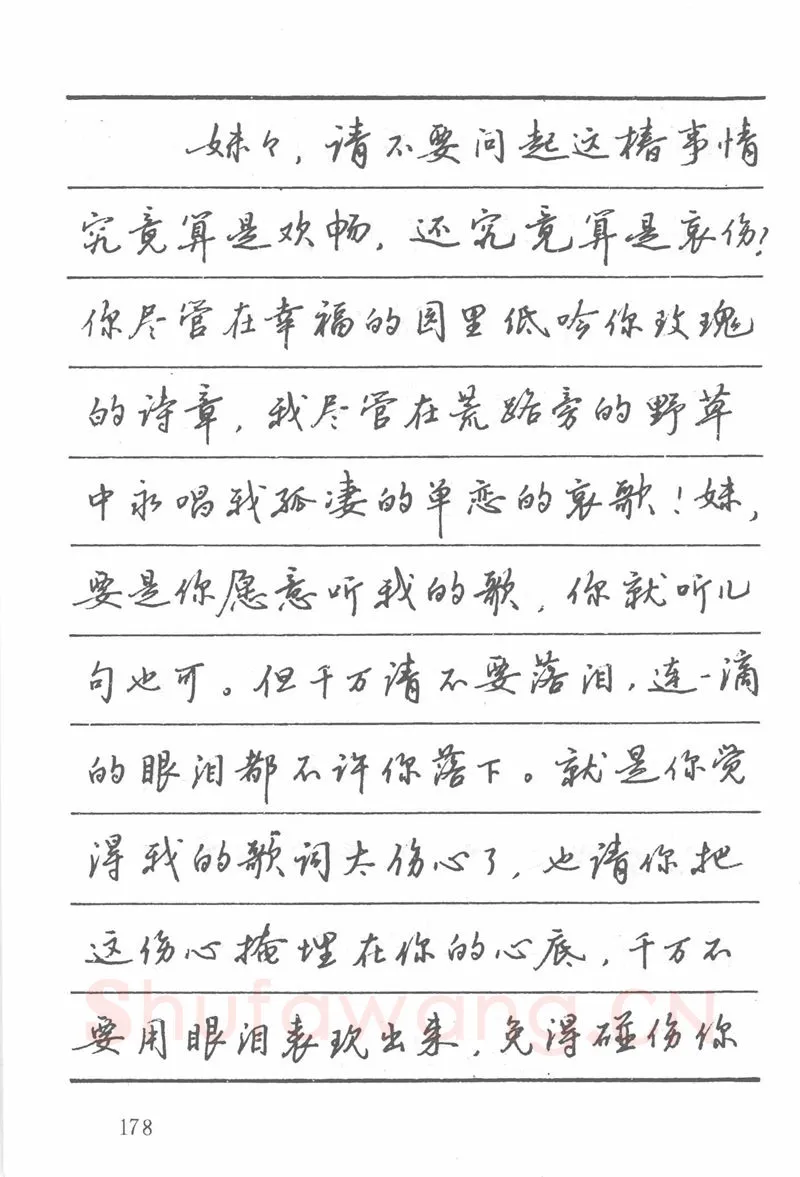 妹々，请不要问起这椿事情
究竟算是欢畅，还究竟算是哀伤？
你尽管在幸福的园里低吟你玫瑰
的诗章，我尽管在荒路旁的野草
中永唱我孤凄的单恋的哀歌！妹，
要是你愿意听我的歌，你就听几
句也可。但千万请不要落泪，连一滴
的眼泪都不许你落下。就是你觉
得我的歌词太伤心了，也请你把
这伤心掩埋在你的心底，千万不
要用眼泪表现出来，免得碰伤你
Shufawang.CN
178